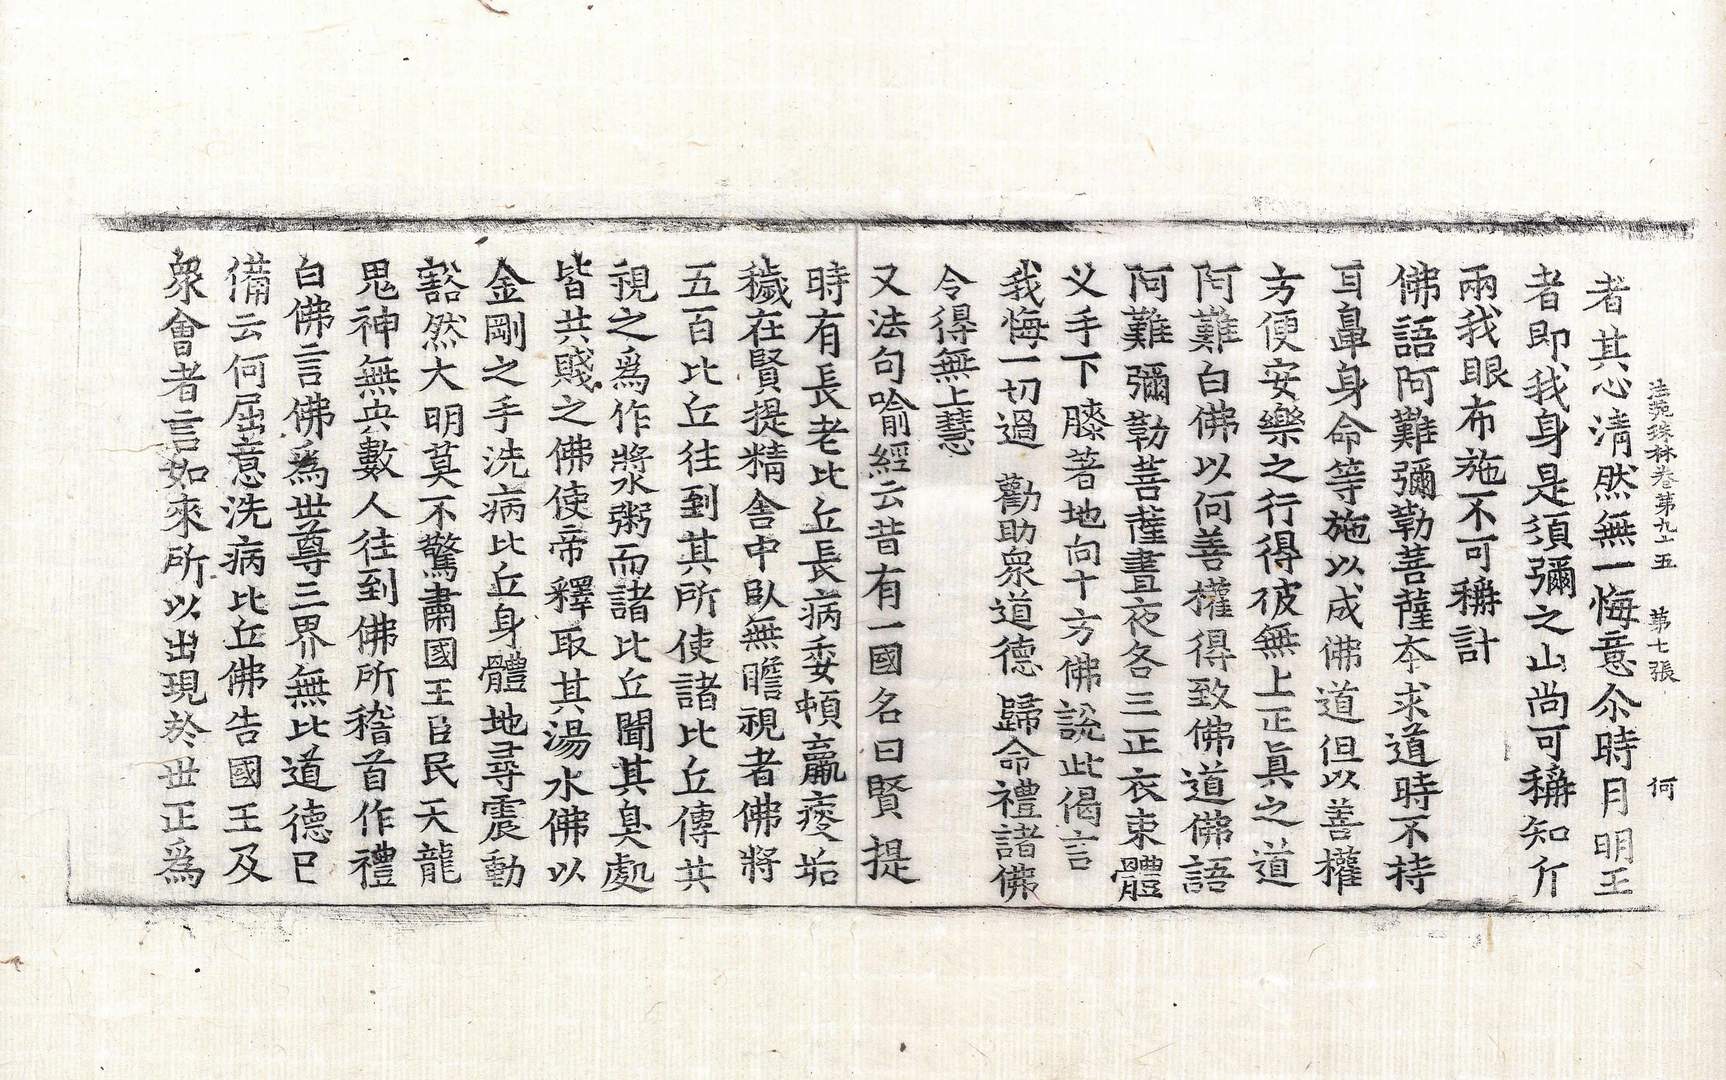 法苑珠林卷第九十五　第七張　何
者其心清然無一悔意尒時月明王
者即我身是須彌之山尚可稱知斤
兩我眼布施不可稱計
佛語阿難彌勒菩薩本求道時不持
耳鼻身命等施以成佛道但以善權
方便安樂之行得彼無上正真之道
阿難白佛以何善權得致佛道佛語
阿難彌勒菩薩晝夜各三正衣束體
叉手下膝著地向十方佛說此偈言
我悔一切過　勸助衆道德　歸命禮諸佛
令得無上慧
又法句喻經云昔有一國名曰賢提
時有長老比丘長病委頓羸痠垢
穢在賢提精舍中臥無瞻視者佛將
五百比丘往到其所使諸比丘傳共
視之爲作漿粥而諸比丘聞其臭處
皆共賤之佛使帝釋取其湯水佛以
金剛之手洗病比丘身體地尋震動
豁然大明莫不驚肅國王臣民天龍
鬼神無央數人往到佛所稽首作禮
白佛言佛爲世尊三界無比道德已
備云何屈意洗病比丘佛告國王及
衆會者言如來所以出現於世正爲